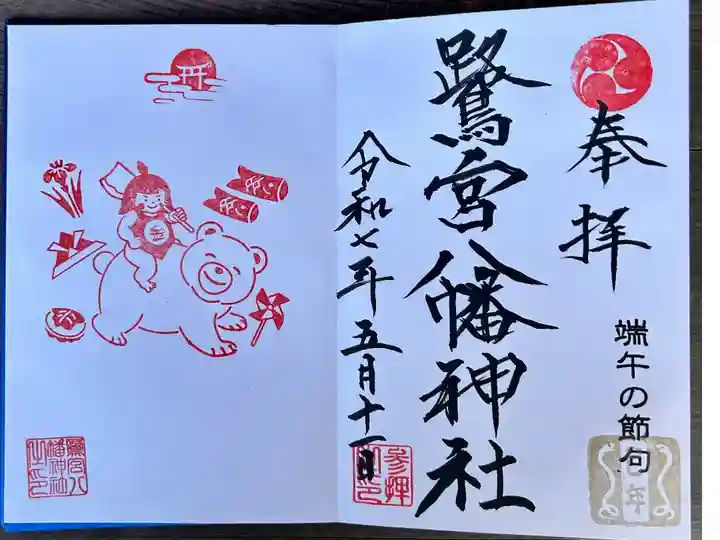 奉拝
端午の節句
年
鷺宮八幡神社
令和七年五月十一日
参拝
金
鷺宮八
幡神社
之印